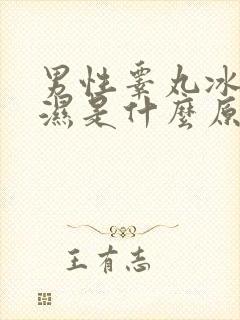 男性睪丸冰
濕是什麼原
王有志